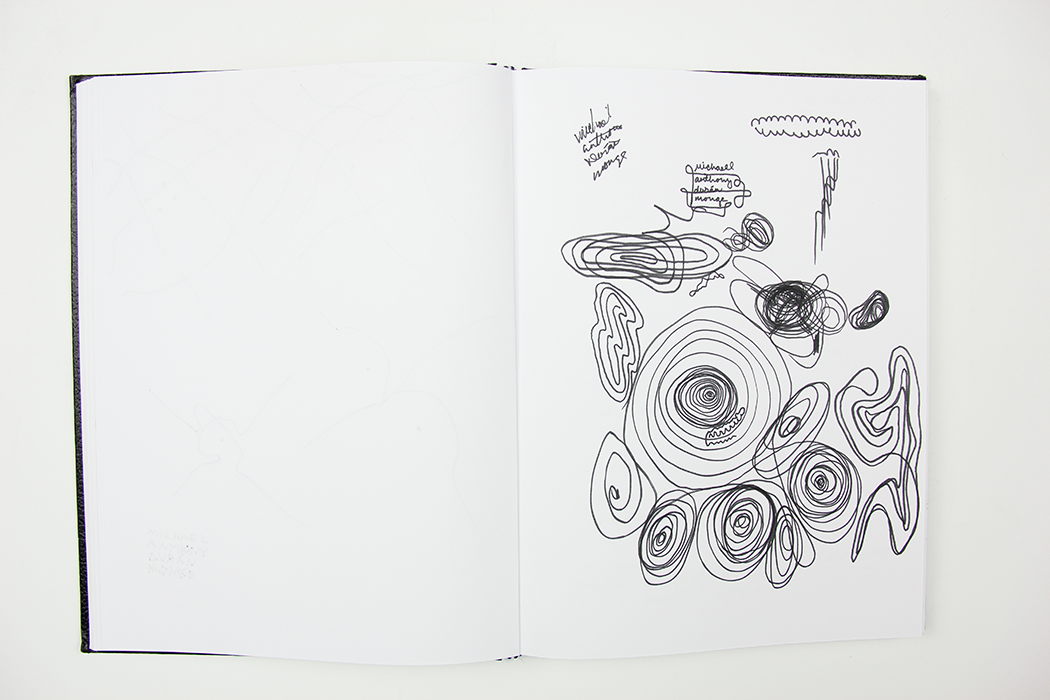 michael
anthony
durán
monge
michael
anthony
durán
monge